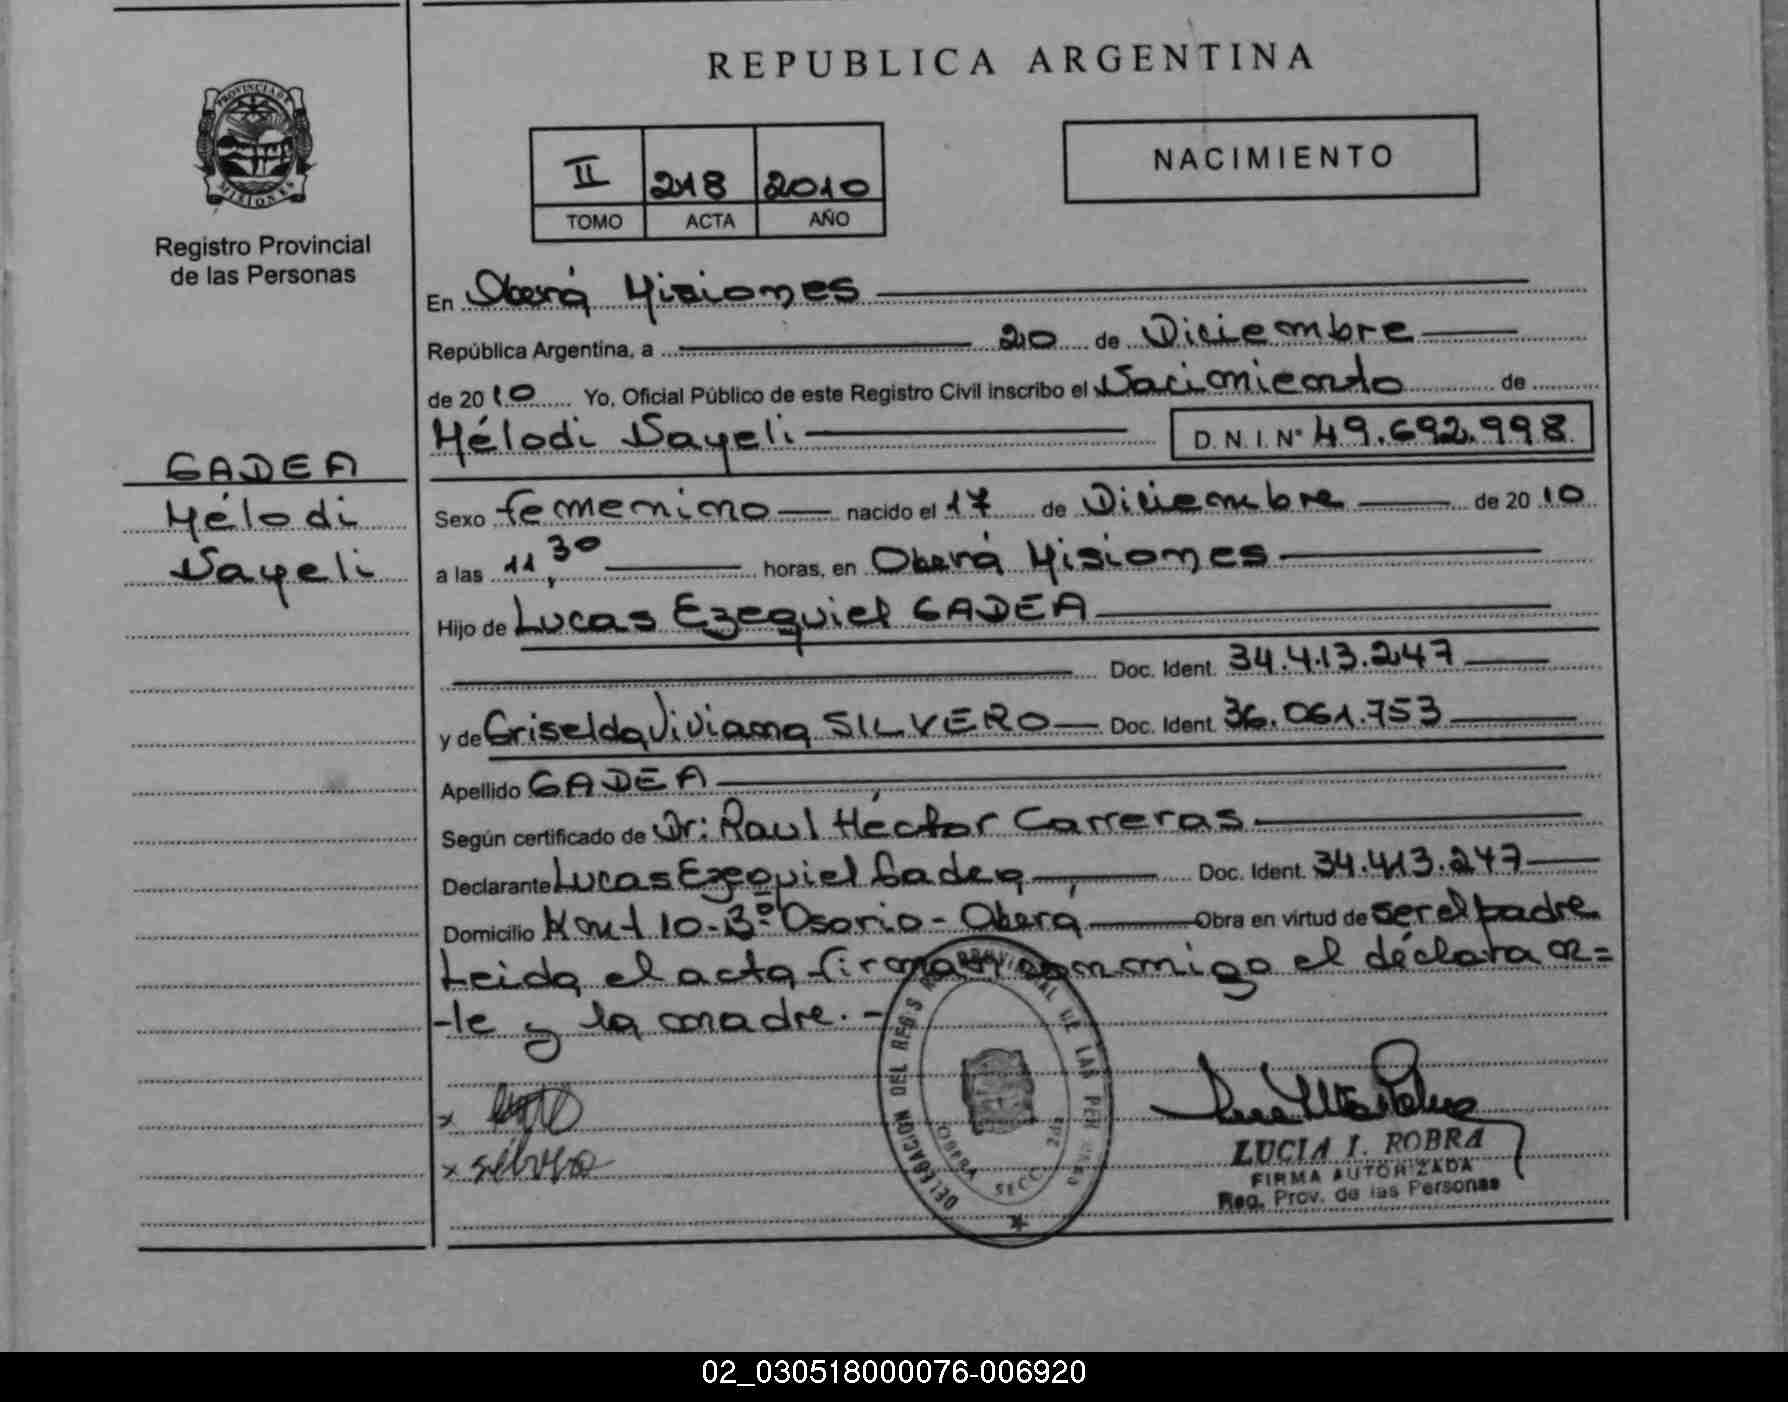 REPUBLICA ARGENTINA
PROVINCIA DE
MISIONES
Registro Provincial
de las Personas
II 218 2010
TOMO ACTA AÑO
NACIMIENTO
En Oberá Misiones
República Argentina, a 20 de Diciembre
de 2010 Yo, Oficial Público de este Registro Civil inscribo el Nacimiento de
Mélodi Nayeli D.N.I. N° 49.692.998
GADEA
Mélodi
Nayeli
Sexo femenino nacido el 17 de Diciembre de 2010
a las 11,30 horas, en Oberá Misiones
Hijo de Lucas Ezequiel GADEA
Doc. Ident. 34.413.247
y de Griselda Viviana SILVERO Doc. Ident. 36.061.753
Apellido GADEA
Según certificado de Dr: Raul Héctor Carreras
Declarante Lucas Ezequiel Gadea Doc. Ident. 34.413.247
Domicilio Km 10-B° Osorio - Oberá Obra en virtud de ser el padre
Leida el acta firman conmigo el declara n=
-te y la madre.-
x
x silvero
DELEGACION DEL REGIS PROVINCIAL DE LAS PERSONAS
OBERA SECC. 2da
LUCIA I. ROBRA
FIRMA AUTORIZADA
Reg. Prov. de las Personas
02_030518000076-006920